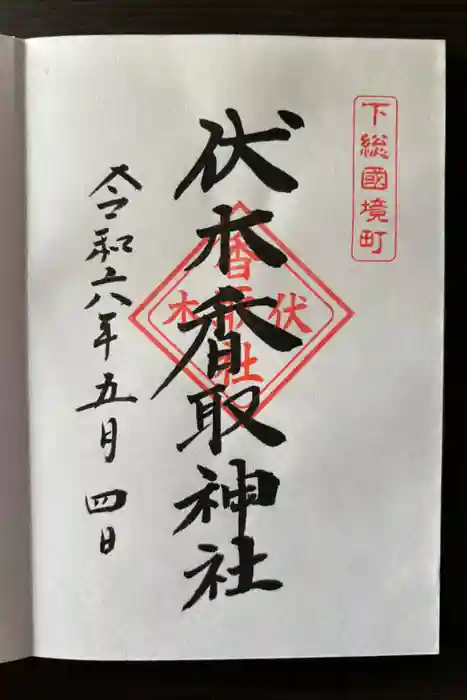 下総國境町
伏木香取神社
令和六年五月四日
伏木
香取社